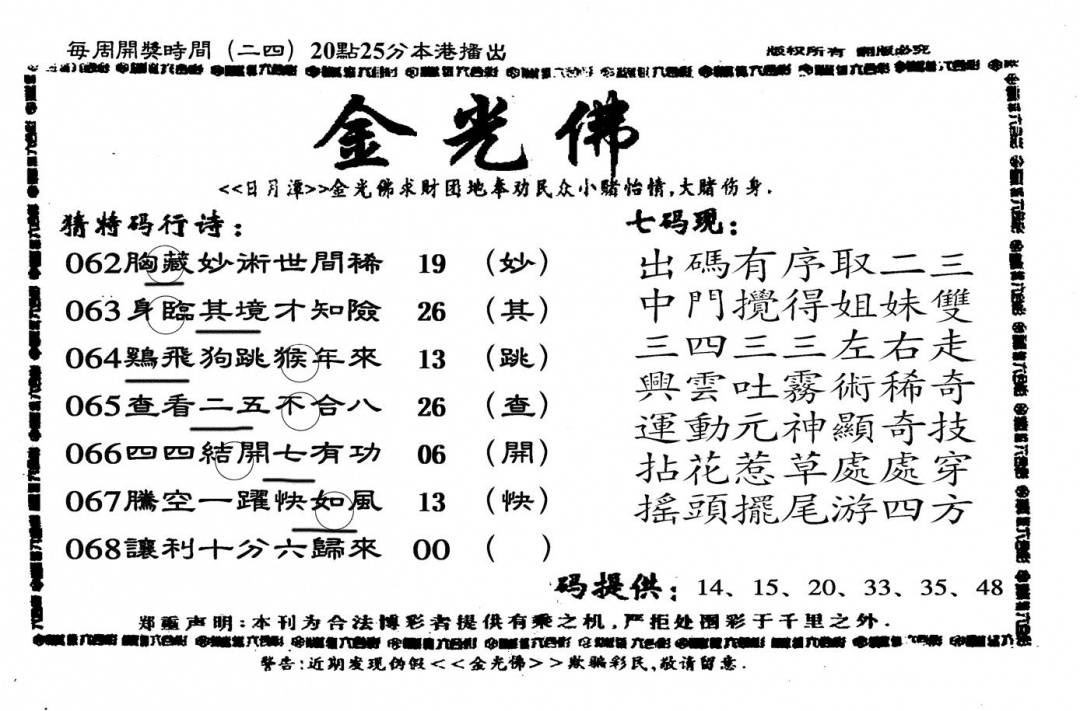 每周開獎時間（二四）20點25分本港播出
版权所有 翻版必究
金光佛
<<日月潭>>金光佛求财团地奉劝民众小赌怡情,大赌伤身.
猜特码行诗：
062胸藏妙術世間稀 19 （妙）
063身臨其境才知險 26 （其）
064鷄飛狗跳猴年來 13 （跳）
065查看二五不合八 26 （查）
066四四結開七有功 06 （開）
067騰空一躍快如風 13 （快）
068讓利十分六歸來 00 （ ）
七码现：
出碼有序取二三
中門攪得姐妹雙
三四三三左右走
興雲吐霧術稀奇
運動元神顯奇技
拈花惹草處處穿
摇頭擺尾游四方
码提供：14、15、20、33、35、48
郑重声明:本刊为合法博彩者提供有乘之机,严拒处图彩于千里之外.
警告:近期发现伪假<<金光佛>>欺骗彩民,敬请留意.